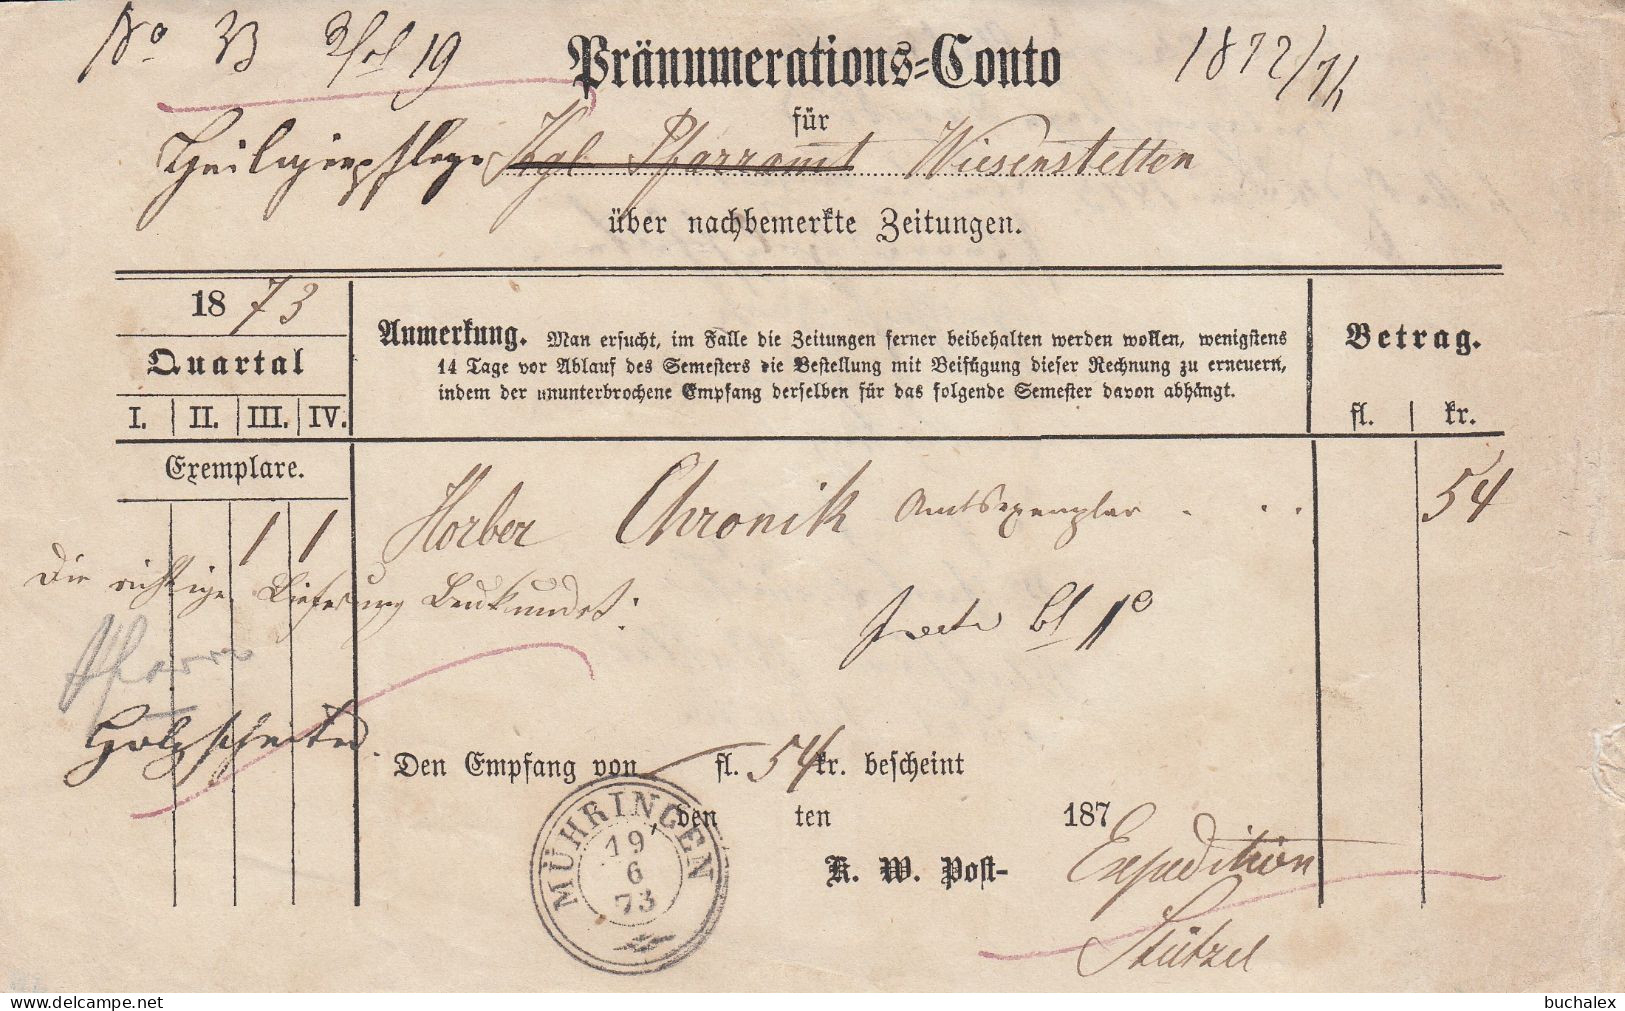 No 33 19 1872/74
Pränumerations=Conto
für
Heiligenpflege Kgl. Pfarramt Wiesenstetten
über nachbemerkte Zeitungen.
1873
Quartal
I. II. III. IV.
Exemplare.
Anmerkung. Man ersucht, im Falle die Zeitungen ferner beibehalten werden wollen, wenigstens
14 Tage vor Ablauf des Semesters die Bestellung mit Beifügung dieser Rechnung zu erneuern,
indem der ununterbrochene Empfang derselben für das folgende Semester davon abhängt.
Betrag.
fl. kr.
1 1 Horber Chronik Amtsexemplar . . . 54
Die richtige Lieferung beurkundet:
Pfarrer
Holzscheiter.
Den Empfang von fl. 54 kr. bescheint
den ten 187
K. W. Post- Expedition
Stützel
MÜHRINGEN
19
6
73
buchalex